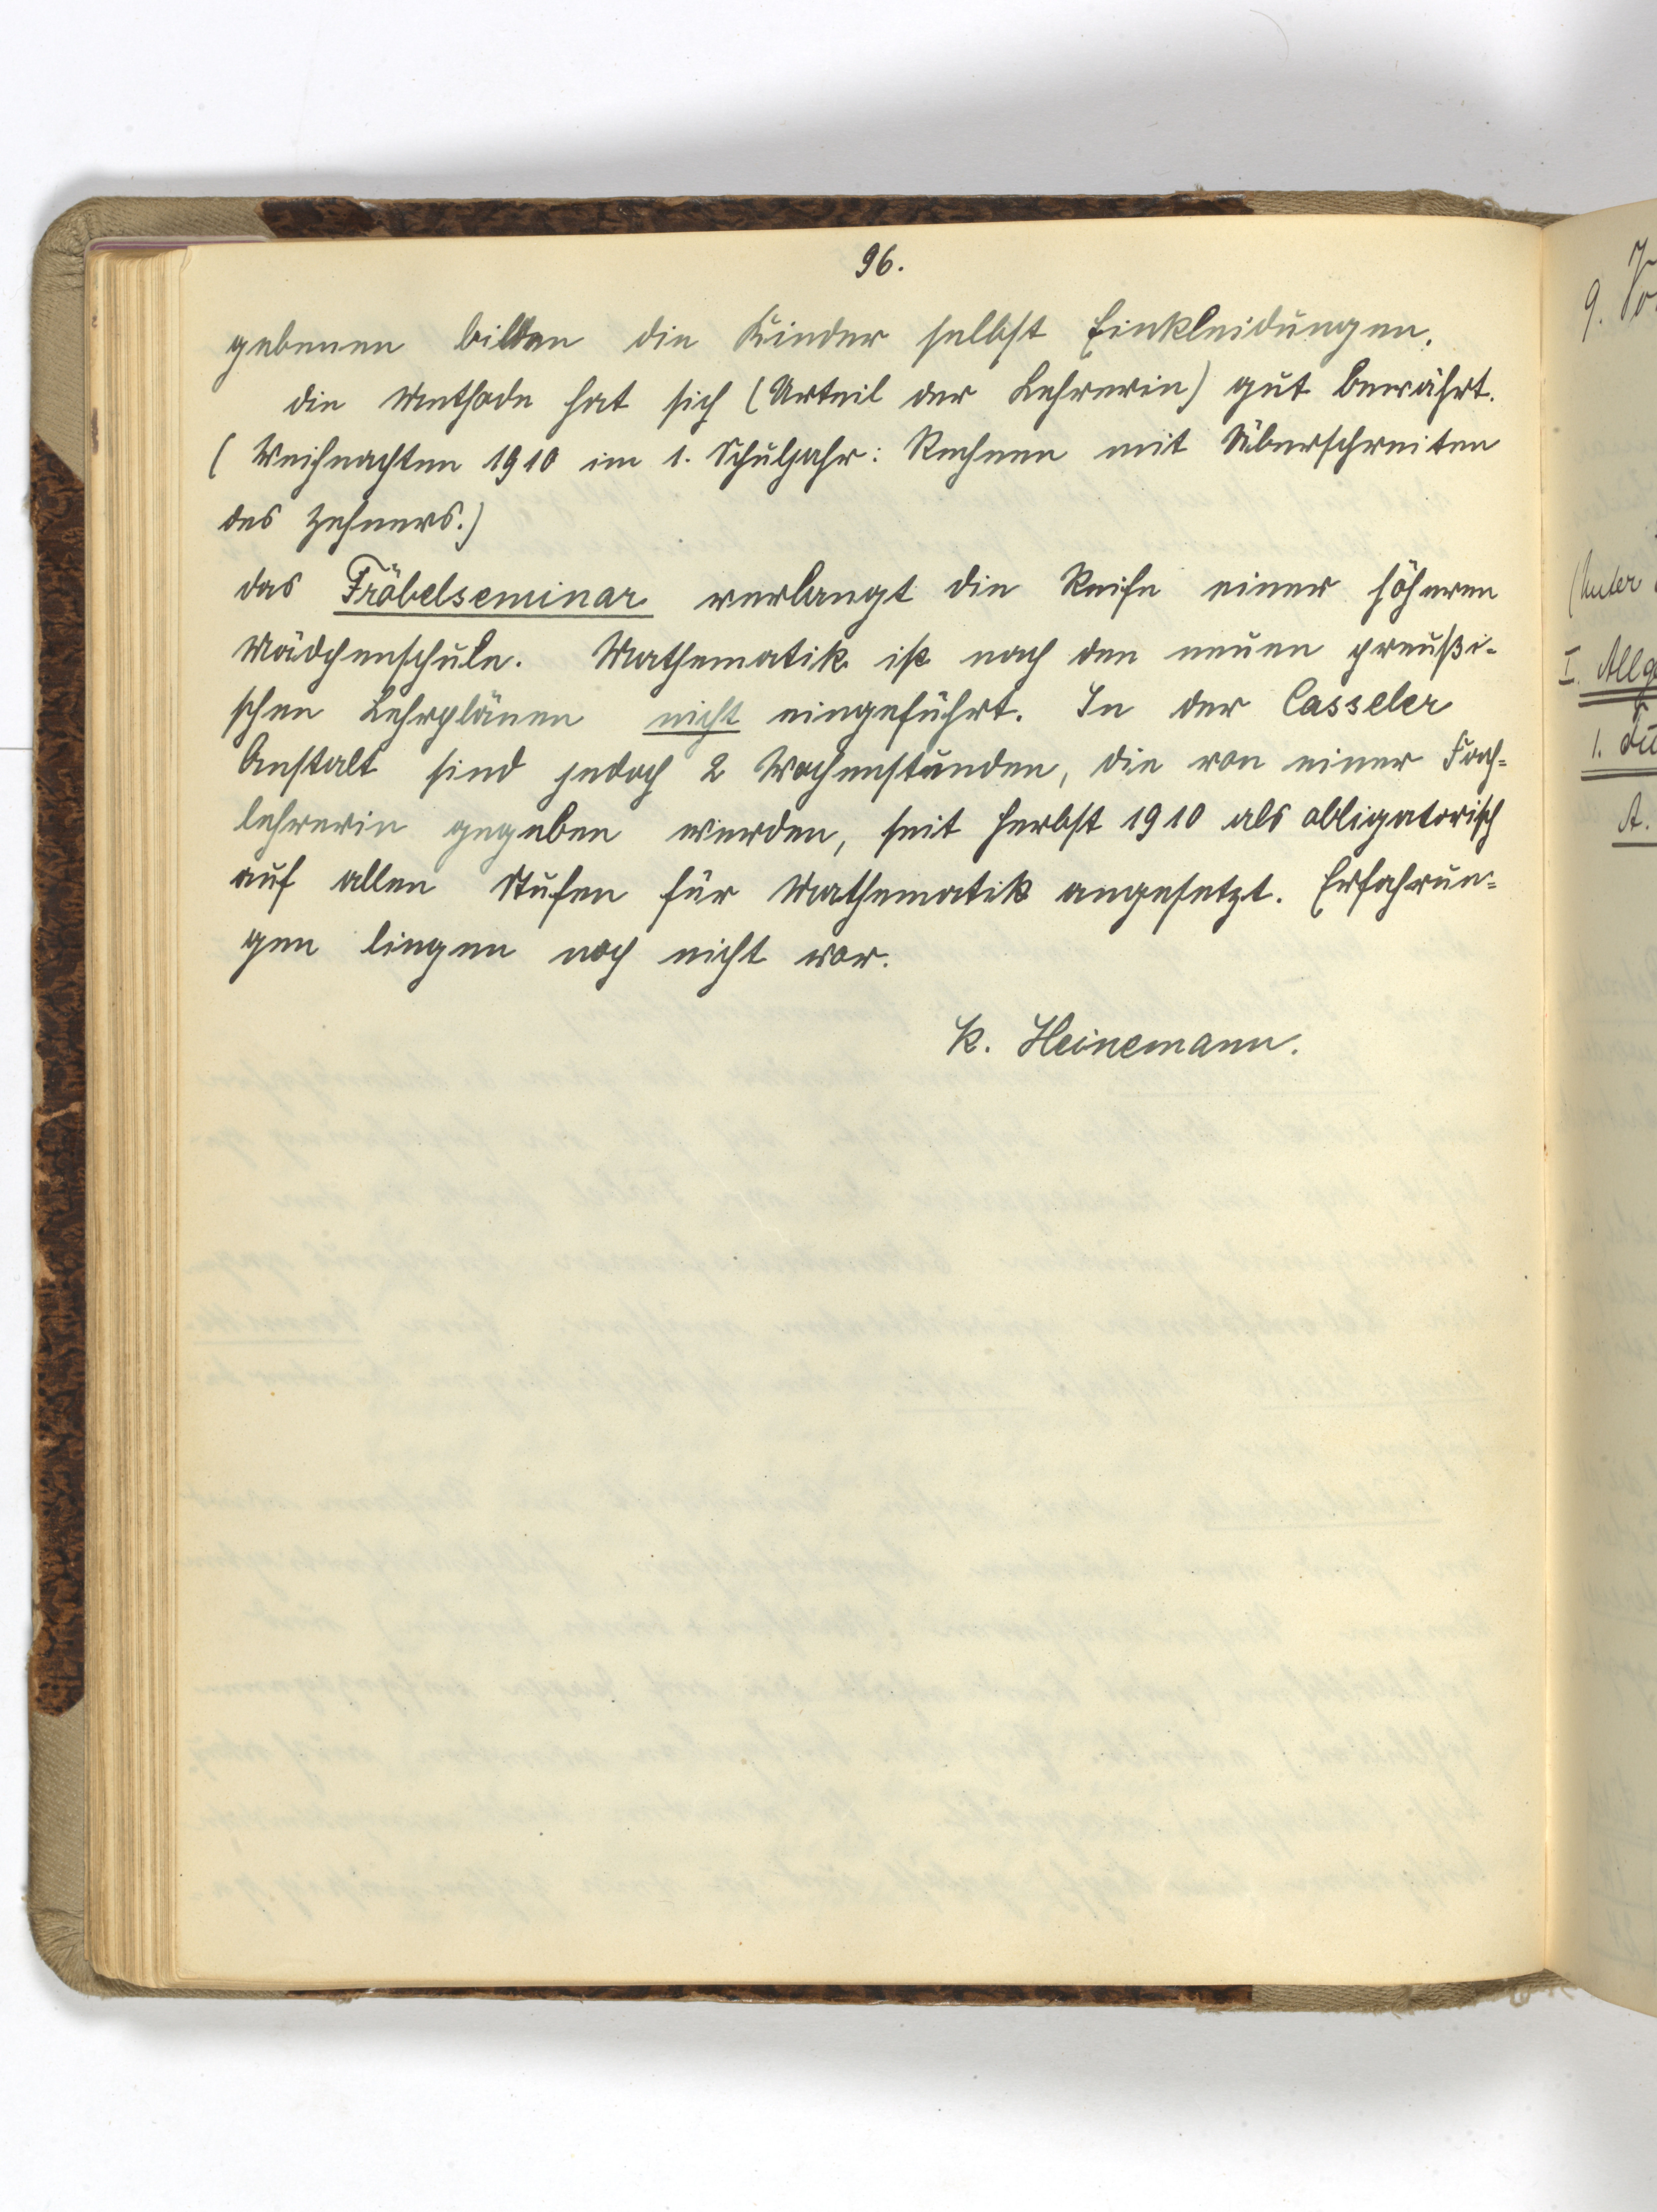 96.
gebenen bilden die Kinder selbst Einkleidungen.
Die Methode hat sich (Urteil der Lehrerin) gut bewährt.
(Weihnachten 1910 im 1. Schuljahr: Rechnen mit Überschreiten
des Zehners.)
Das Fröbelseminar verlangt die Reife einer höheren
Mädchenschule. Mathematik ist nach den neuen preußi-
schen Lehrplänen nicht eingeführt. In der Casseler
Anstalt sind jedoch 2 Wochenstunden, die von einer Fach=
lehrerin gegeben werden, seit Herbst 1910 als obligatorisch
auf allen Stufen für Mathematik angesetzt. Erfahrun=
gen liegen noch nicht vor.
K. Heinemann.
9. Vo
(Unter
I. Allg
1.
A.